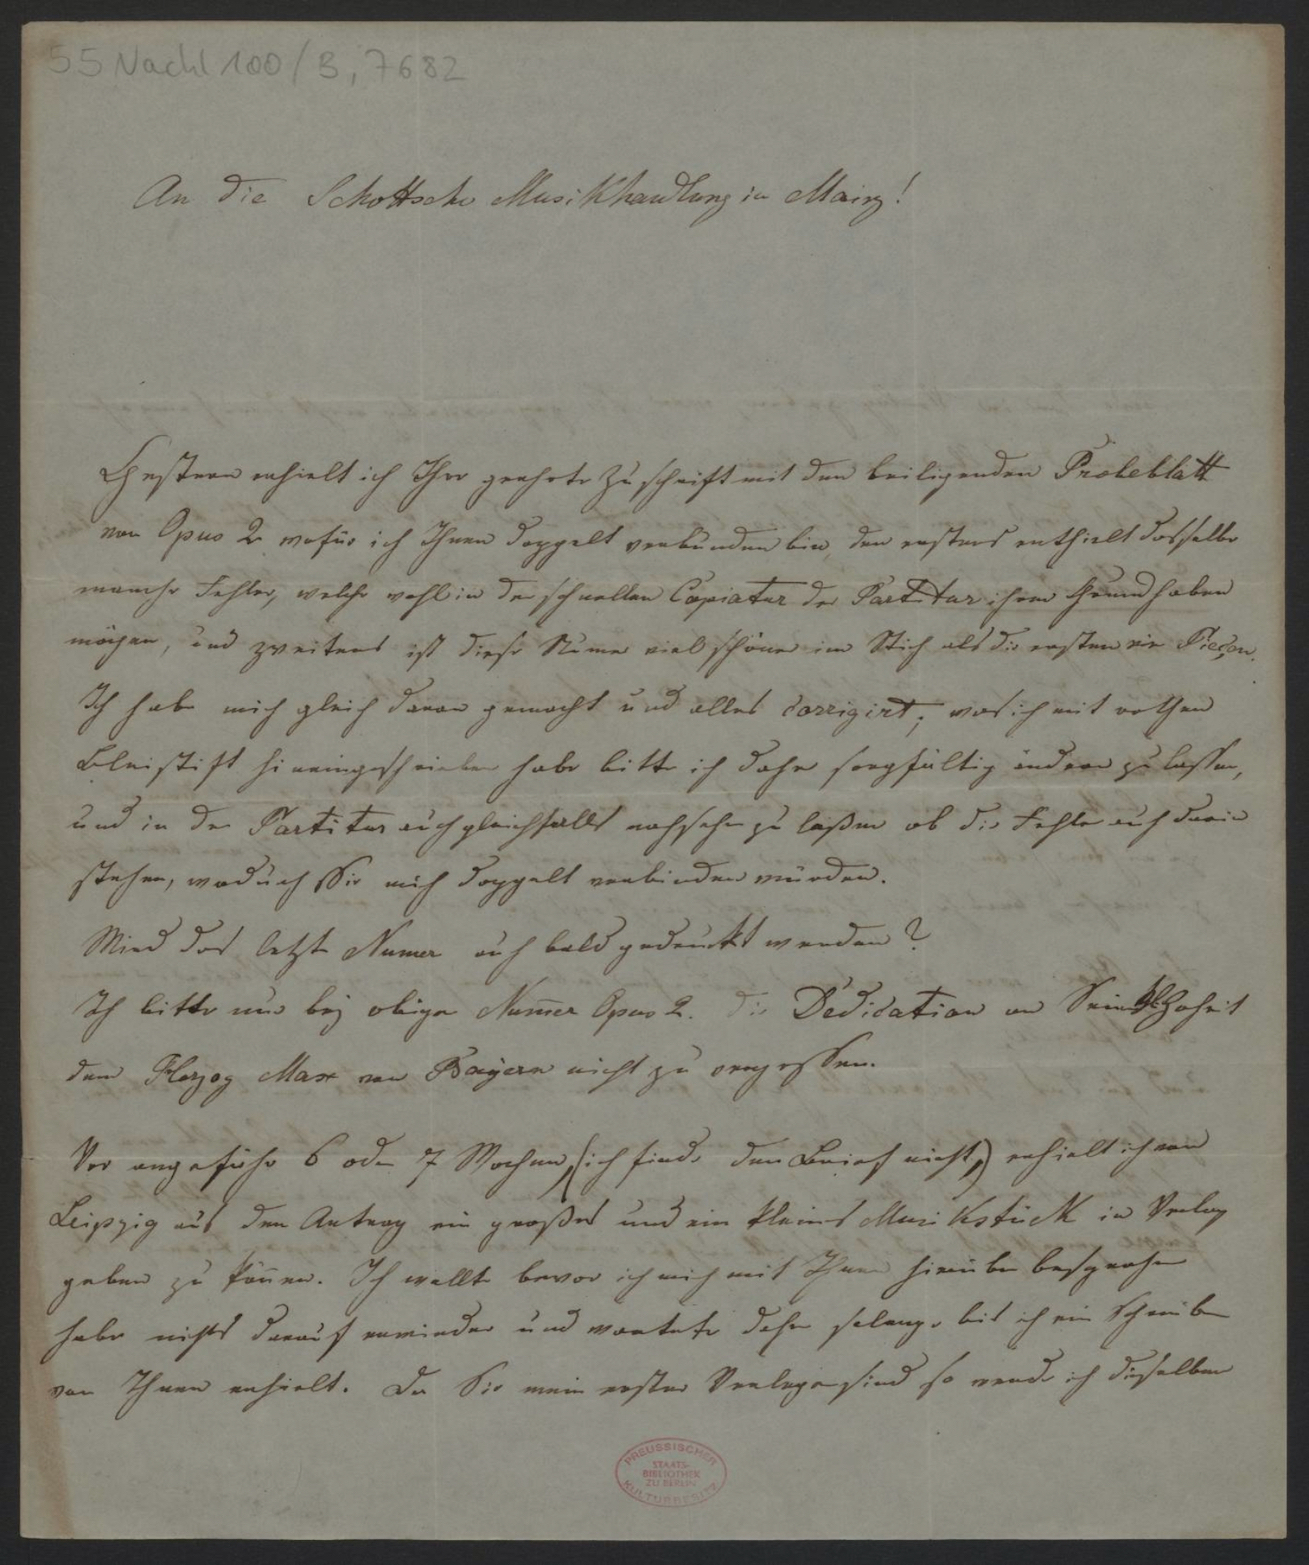 55 Nachl 100/B, 7682
An die Schottsche Musikhandlung in Mainz!
Gestern erhielt ich Ihre geehrte Zuschrift mit den beiligenden Probeblatt
von Opus 2 wofür ich Ihnen doppelt verbunden bin, den erstens enthielt dasselbe
manche Fehler, welche wohl in der schnellen Copiatur der Partitur ihren Grund haben
mögen, und zweitens ist diese Numer viel schöner im Stich als die ersten vier Pieçen.
Ich habe mich gleich daran gemacht und alles corrigirt; was ich mit rothen
Bleistift hineingeschrieben habe bitte ich daher sorgfältig ändern zu lassen,
und in der Partitur auch gleichfalls nachsehen zu laßen ob die Fehler auch darin
stehen, wodurch Sie mich doppelt verbinden würden.
Wird das letzte Numer auch bald gedruckt werden?
Ich bitte nur bey obiger Numer Opus 2. die Dedication an Seine Hoheit
dem Herzog Max von Bayern nicht zu vergessen.
Vor ungefähr 6 oder 7 Wochen, (ich finde den Brief nicht,) erhielt ich von
Leipzig aus den Antrag ein großes und ein kleines Musikstück in Verlag
geben zu können. Ich wollte bevor ich mich mit Ihnen hierüber besprochen
habe nichts darauf erwiedern und wartete daher solange bis ich ein Schreiben
von Ihnen erhielt. Da Sie mein erster Verleger sind so werde ich dieselben
PREUSSISCHER
STAATS-
BIBLIOTHEK
ZU BERLIN
KULTURBESITZ